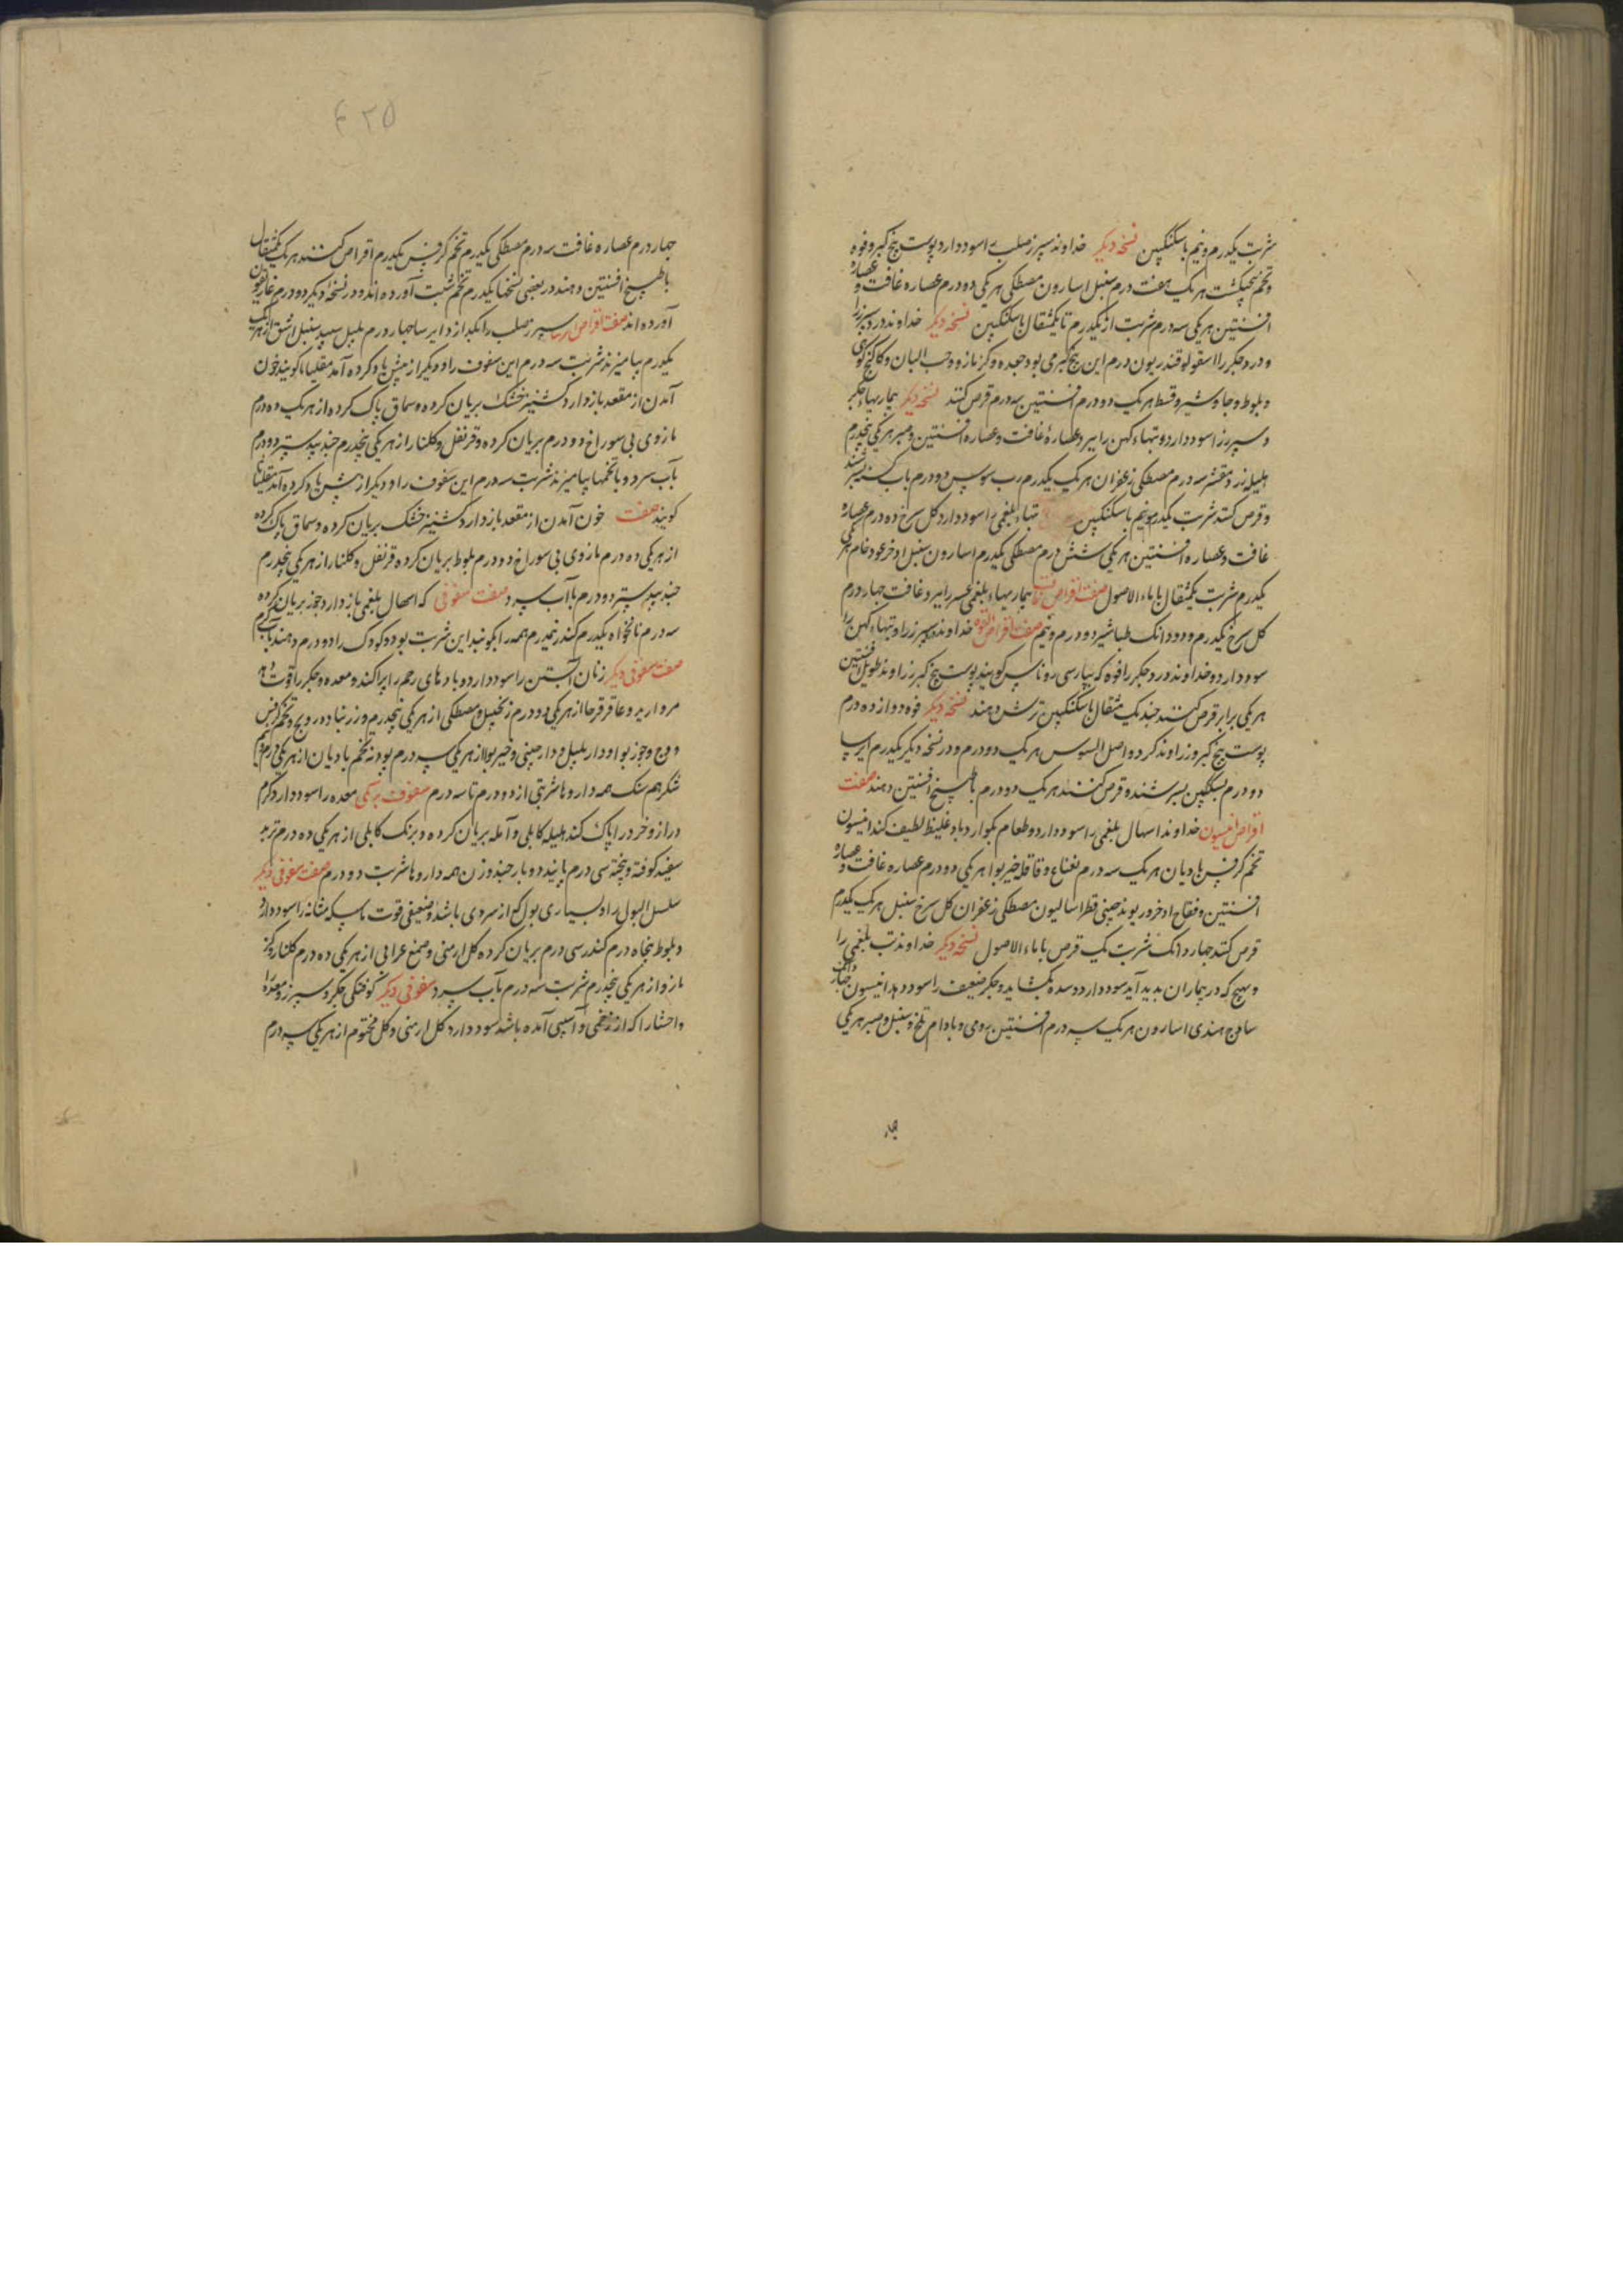 شربت یکدرم و نیم با سکنکبین نسخه دیکر خداوند سپرز صلب را سود دارد پوست بیخ کبر و فوه
و تخم پنجنکشت هر یک هفت درم سنبل اسارون مصطکی هر یکی دو درم عصاره غافت و عصاره
افسنتین هر یکی سه درم شربت از یکدرم تا یکمثقال با سکنکبین نسخه دیکر خداوند درد سپرز را
و درد جکر را اسقولوقندریون درم این بیخ کبر می بود جعده و کزمازو و حب البان و کاکنج کوهی
و بلوط و جاوشیر و قسط هر یک دو درم افسنتین سه درم قرص کنند نسخه دیکر بیماریهاء جکر
و سپرز را سود دارد و تبهاء کهن را ببرد عصارهٔ غافت و عصاره افسنتین و صبر هر یکی پنجدرم
هلیله زرد مقشر سه درم مصطکی زعفران هر یک یکدرم رب سوس دو درم باب بسرشند
و قرص کنند شربت یکدرم و نیم با سکنکبین تبهاء بلغمی را سود دارد کل سرخ ده درم عصاره
غافت و عصاره افسنتین هر یکی شش درم مصطکی یکدرم اسارون سنبل اذخر عود خام هر یکی
یکدرم شربت یکمثقال با ماء الاصول صفت اقراص غافت بیماریهاء بلغمی را ببرد غافت جهار درم
کل سرخ یکدرم و دو دانک طباشیر دو درم و نیم صفت اقراص الفوه خداوند سپرز را و تبهاء کهن را
سود دارد و خداوند درد جکر را فوه که بپارسی روناس کویند پوست بیخ کبر زراوند طویل افسنتین
هر یکی برابر قرص کنند جند یک مثقال با سکنکبین ترش دهند نسخه دیکر فوه دوازده درم
پوست بیخ کبر و زراوند کرد و اصل السوس هر یک دو درم و در نسخه دیکر یکدرم ایرسا
دو درم بسکنکبین بسرشند و قرص کنند هر یک دو درم با طبیخ افسنتین دهند صفت
اقراص انیسون خداوند اسهال بلغمی را سود دارد و طعام بکوارد باد غلیظ لطیف کند انیسون
تخم کرفس بادیان هر یک سه درم نعناع و قاقله خیربوا هر یکی دو درم عصاره غافت و عصاره
افسنتین و فقاح اذخر و ریوند چینی فطراسالیون مصطکی زعفران کل سرخ سنبل هر یک یکدرم
قرص کنند جهار دانک شربت یک قرص با ماء الاصول نسخه دیکر خداوند تب بلغمی را
و تهیج که در بیماران بدید آید سود دارد و سده بکشاید و جکر ضعیف را سود دهد انیسون
ساذج هندی اسارون هر یک سه درم افسنتین رومی و بادام تلخ و سنبل و صبر هر یکی
جهار
۴۲۵
جهار درم عصاره غافت سه درم مصطکی یکدرم تخم کرفس یکدرم اقراص کنند هر یک یکمثقال
با طبیخ افسنتین دهند در بعضی نسخها یکدرم تخم شبت آورده اند و در نسخهٔ دیکر دو درم غاریقون
آورده اند صفت اقراص ایرسا سپرز صلب را بکدازد ایرسا جهار درم پلپل سپید سنبل اشق از هر یک
یکدرم بیامیزند شربت سه درم این سفوف را و دیکر از پیش یاد کرده آمد مقلیاثا کویند خون
آمدن از مقعد بازدارد کشنیز خشک بریان کرده و سماق پاک کرده از هر یک ده درم
مازوی بی سوراخ دو درم بریان کرده و قرنفل و کلنار از هر یکی پنجدرم جندبیدستر دو درم
بآب سرد و با تخمها بیامیزند شربت سه درم این سفوف را و دیکر از پیش یاد کرده آمد مقلیاثا
کویند صفت خون آمدن از مقعد بازدارد کشنیز خشک بریان کرده و سماق پاک کرده
از هر یکی ده درم مازوی بی سوراخ دو درم بلوط بریان کرده قرنفل و کلنار از هر یکی پنجدرم
جندبیدستر دو درم با آب سرد صفت سفوفی که اسهال بلغمی بازدارد جوز بریان کرده
سه درم نانخواه یکدرم کندر نیمدرم همه را بکوبند این شربت بود کودک را دو درم دهند بآب کرم
صفت سفوفی دیکر زنان آبستن را سود دارد و بادهای رحم را پراکند و معده و جکر را قوت دهد
مروارید و عاقرقرحا از هر یکی دو درم زنجبیل و مصطکی از هر یکی پنجدرم و زرنباد و درونج و تخم کرفس
و وج و جوز بوا و دار پلپل و دارچینی و خیربوا از هر یکی سه درم بودنه تخم بادیان از هر یکی درم و نیم
شکر هم سنک همه داروها شربتی از دو درم تا سه درم سفوف برمکی معده را سود دارد کرم
دراز و خرد را پاک کند هلیله کابلی و آمله بریان کرده و برنک کابلی از هر یکی ده درم تربد
سفید کوفته و بیخته سی درم پانید دو بار جند وزن همه داروها شربت دو درم صفت سفوفی دیکر
سلسل البول را و بسیاری بول که از سردی باشد و ضعیفی قوت ماسکه مثانه را سود دارد
و بلوط پنجاه درم کندر سی درم بریان کرده کل ارمنی و صمغ عرابی از هر یکی ده درم کلنار و کز
مازو از هر یکی پنجدرم شربت سه درم بآب سرد سفوفی دیکر کوفتکی جکر و سپرز و معده را
و احشا را که از زخمی و آسیبی آمده باشد سود دارد کل ارمنی و کل مختوم از هر یکی سه درم